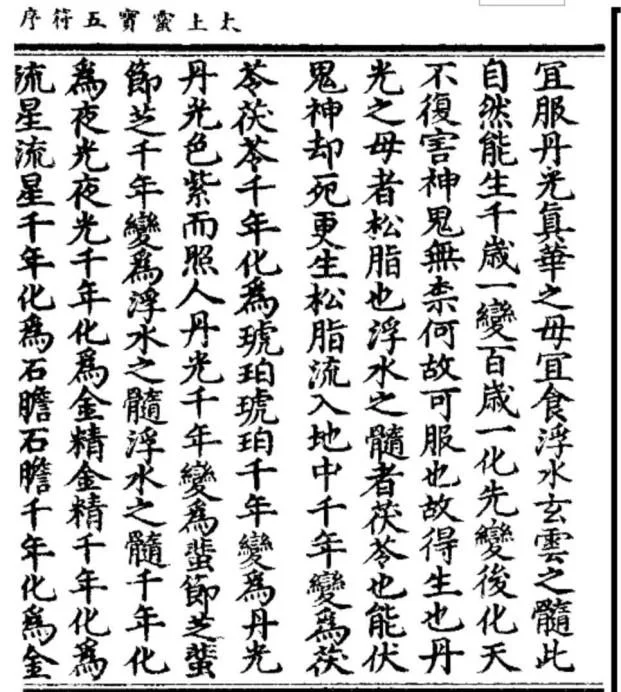 太上靈寳五符序
宜服丹光真華之母宜食浮水玄雲之髓此
自然能生千歲一變百歲一化先變後化天
不復害神鬼無柰何故可服也故得生也丹
光之母者松脂也浮水之髓者茯苓也能伏
鬼神却死更生松脂流入地中千年變爲茯
苓茯苓千年化爲琥珀琥珀千年變爲丹光
丹光色紫而照人丹光千年變爲蜚節芝蜚
節芝千年變爲浮水之髓浮水之髓千年化
爲夜光夜光千年化爲金精金精千年化爲
流星流星千年化爲石膽石膽千年化爲金